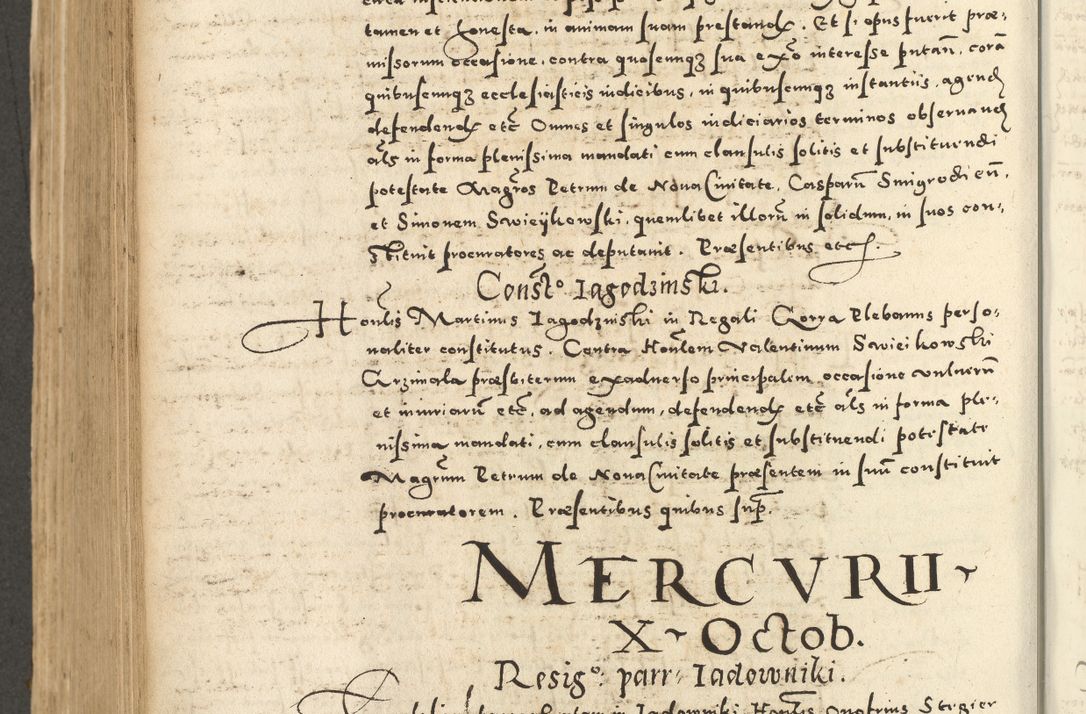 tamen et honesta, in animam suam prestandæ. Et si opus fuerit præ-
missorum occasione, contra quoscunqz sua ex͠o interesse putan̄, corā
quibuscunqz ecclesiasticis iudicibus, in quibuscunqz instantiis, agend
defendendæ etc̄ Omnes et singulos iudiciarios terminos observand
āls in forma plenissima mandati cum clausulis solitis et substituendi
potestate Magr̄os Petrum de Nova Civitate, Casparū Smigrodien̄,
et Simonem Sowieykowski, quemlibet illorū in solidum, in suos con-
stituit procuratores ac deputauit. Præsentibus etc.
Const̄o Iagodzinski.
Honl̄is Martinus Iagodzinski in Regali Gorra Plebanus perso-
naliter constitutus. Contra Honl̄em Valentinum Sowieikowski
Grzimala præsbiterum ex adverso principalem, occasione vulnerū
et iniuriarū etc̄, ad agendum, defendendæ etc̄ āls in forma ple-
nissima mandati, cum clausulis solitis et substituendi potestate
Magr̄um Petrum de Nova Civitate præsentem in suū constituit
procuratorem. Præsentibus quibus sup̄.
MERCVRII
X Octob.
Resig͠o: parr: Iadowniki.
in Iadowniki